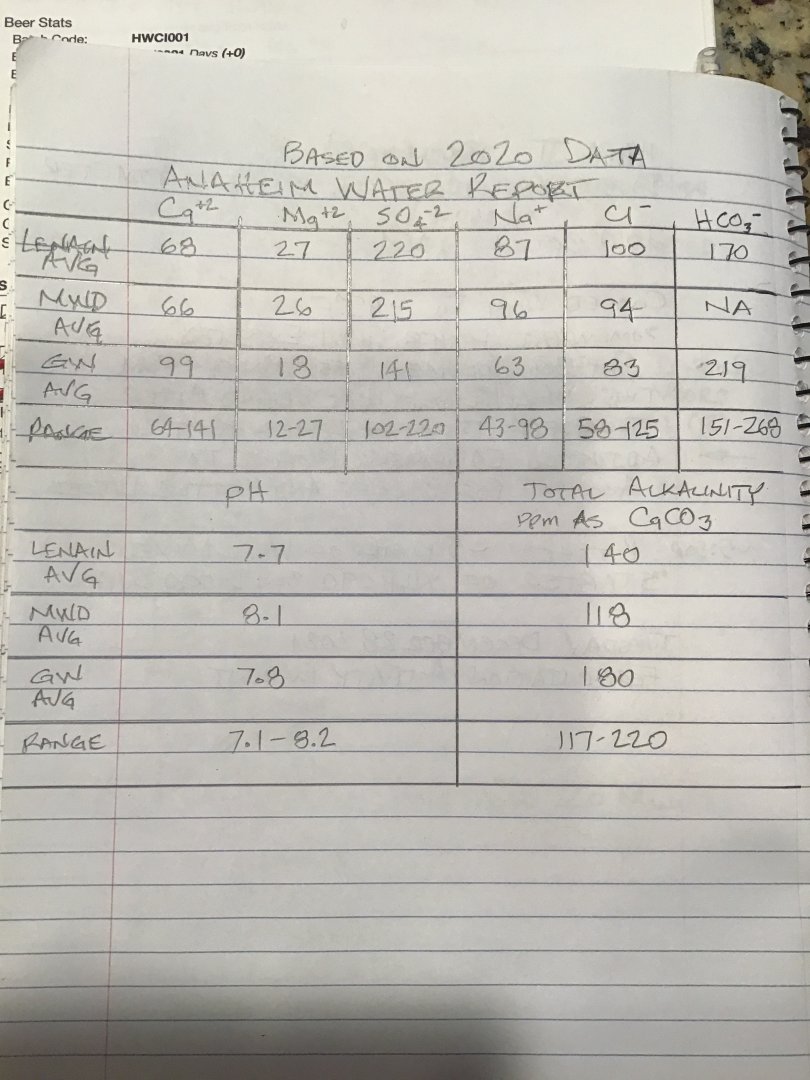 Beer Stats
Batch Code: HWCI001
Days (+0)
BASED ON 2020 DATA
ANAHEIM WATER REPORT
Ca+2 Mg+2 SO4-2 Na+ Cl- HCO3-
LENAIN AVG 68 27 220 87 100 170
MWD AVG 66 26 215 96 94 NA
GW AVG 99 18 141 63 83 219
RANGE 64-141 12-27 102-220 43-98 58-125 151-268
PH TOTAL ALKALINITY
PPM AS CaCO3
LENAIN AVG 7.7 140
MWD AVG 8.1 118
GW AVG 7.8 180
RANGE 7.1-8.2 117-220